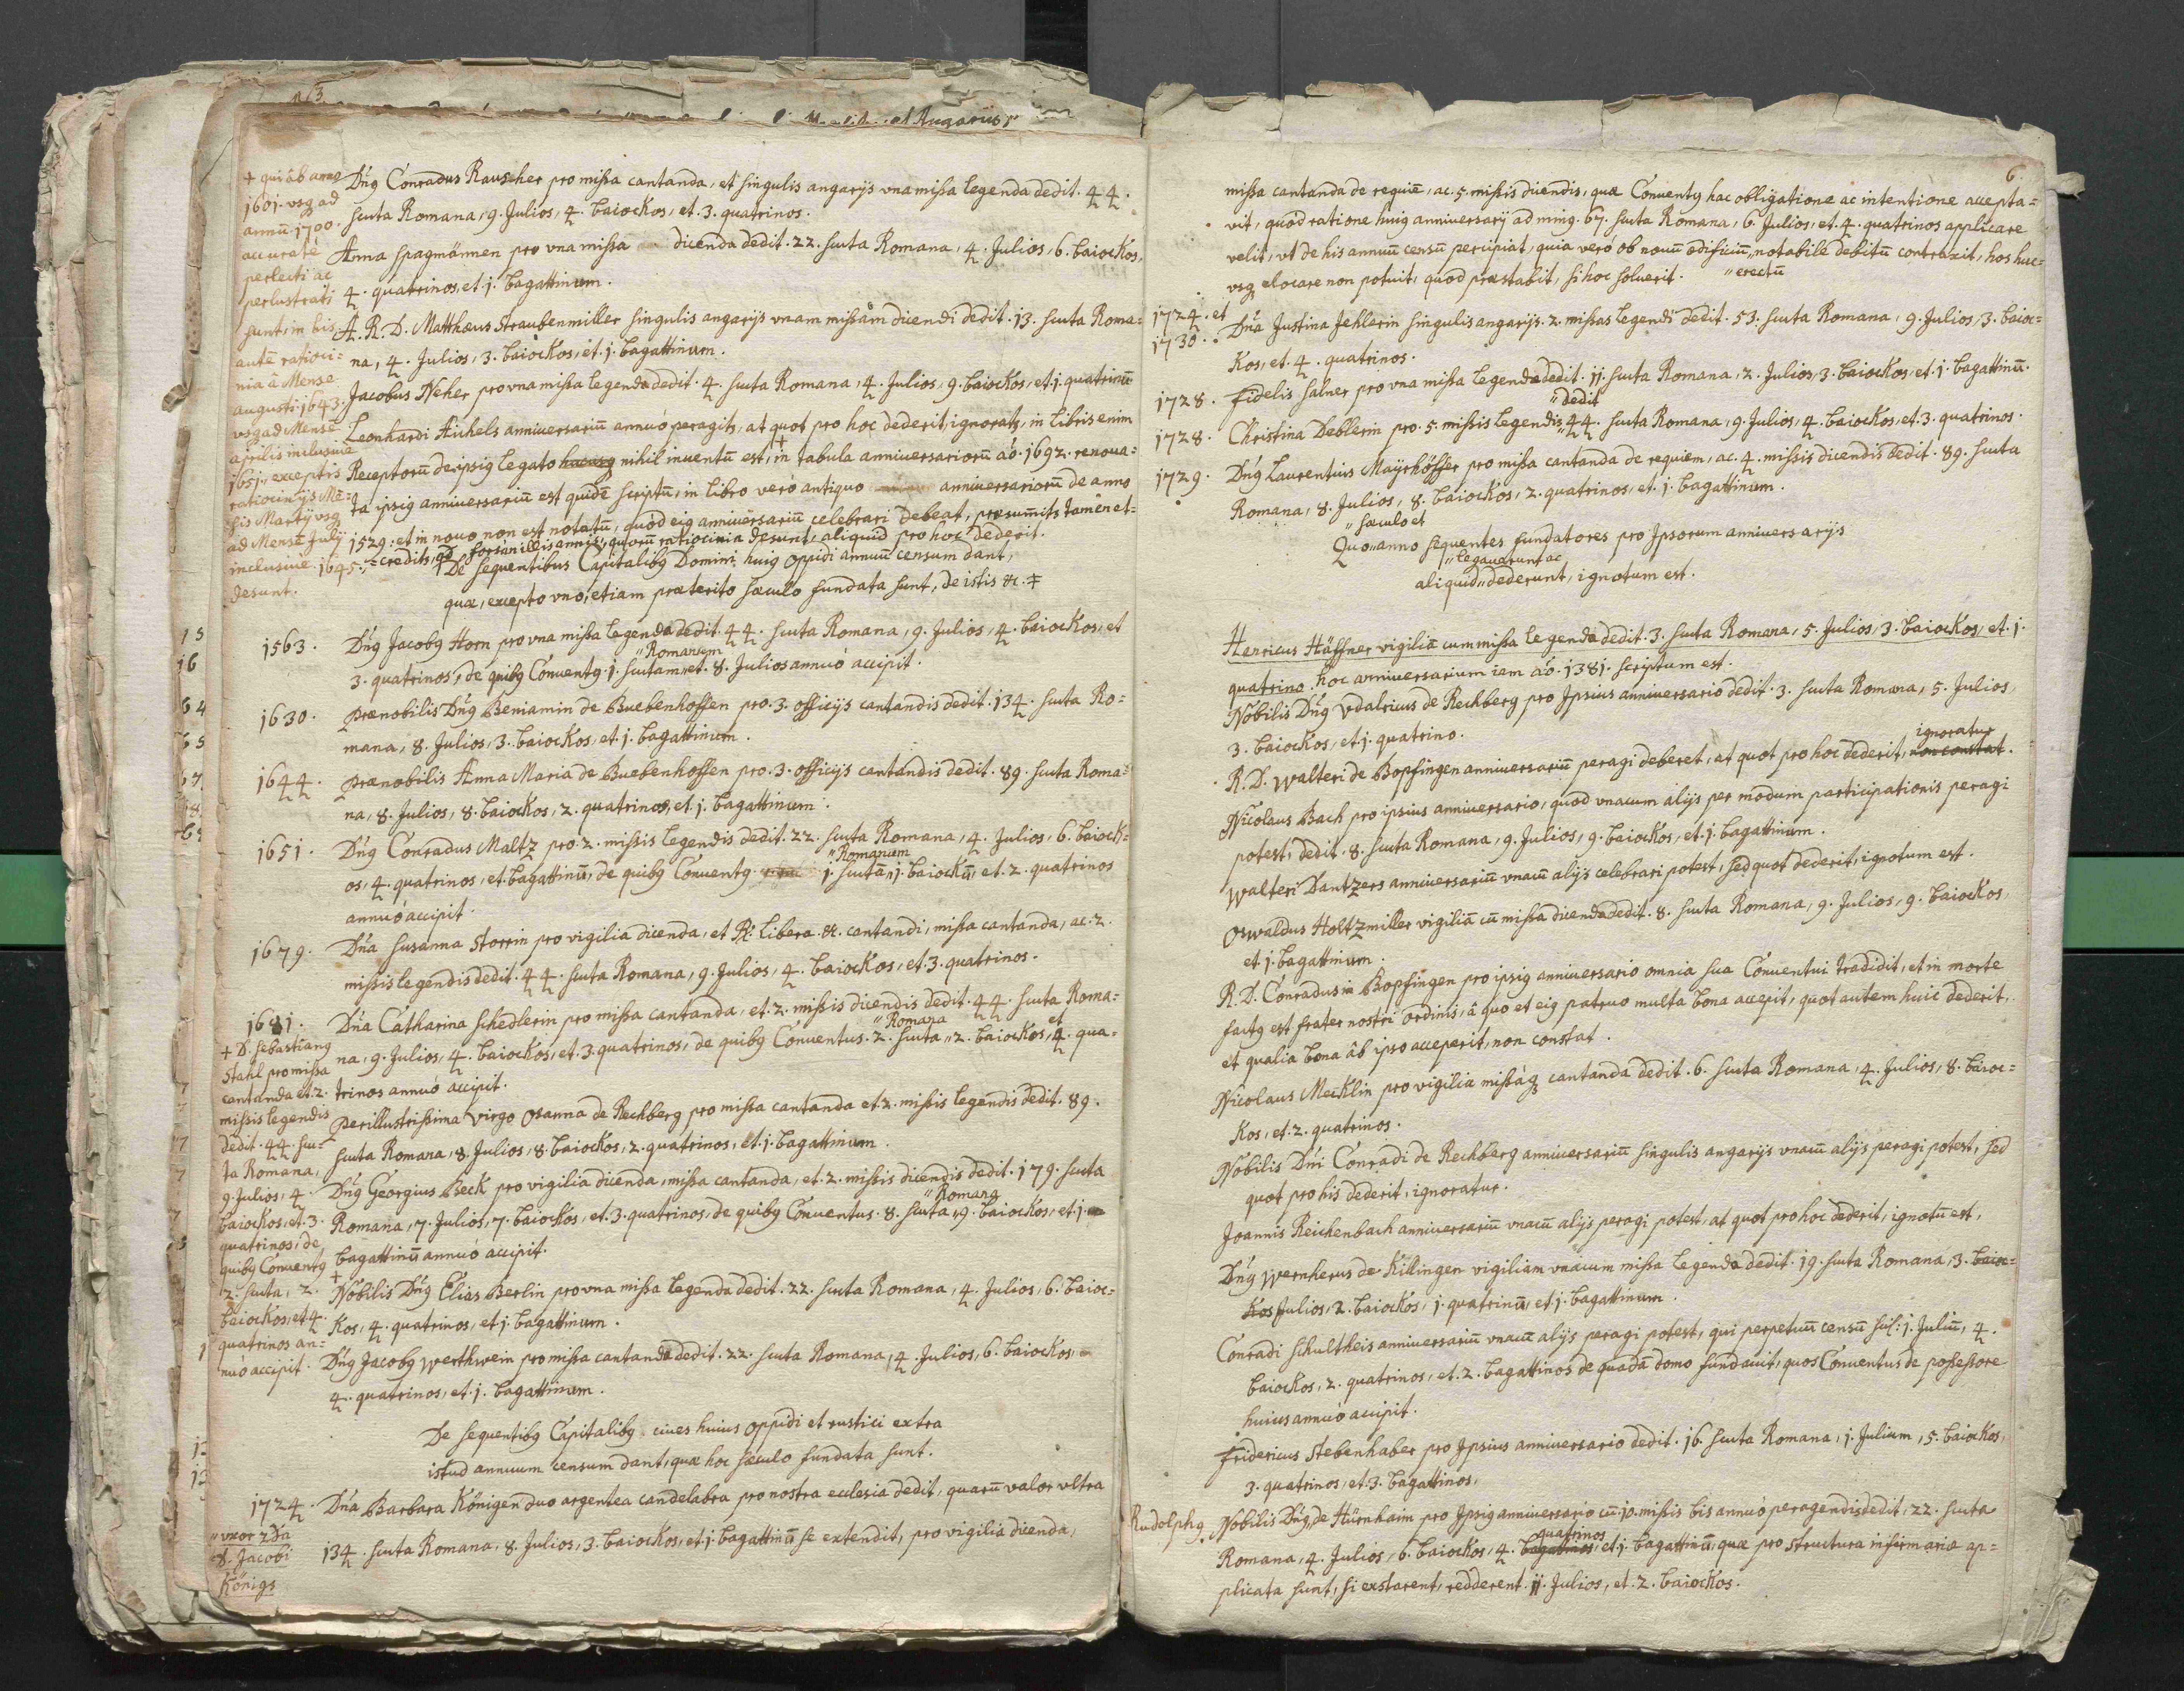 Dn͂g Conradus Rauscher pro missa cantanda, et singulis angarijs vna missa legenda dedit. 44.
scuta Romana, 9. Julios, 4. baiockos, et. 3. quatrinos.
Anna Spagmännen pro vna missa dicenda dedit. 22. scuta Romana, 4. Julios, 6. baiockos,
4. quatrinos, et. j. bagattinum.
A. R. D. Matthæus Straubenmiller singulis angarijs vnam missam dicendi dedit. 13. scuta Roma=
na, 4. Julios, 3. baiockos, et. j. bagattinum.
Jacobus Neher pro vna missa legenda dedit. 4. scuta Romana, 4. Julios, 9. baiockos, et. j. quatrinū
Leonhardi Aichels anniuersariū annuó peragitr, at quot pro hoc dederit, ignoratr, in libris enim
Receptorū de ipsig legato hucusq nihil inuentū est, + in tabula anniuersariorū aó. 1692. renoua=
ta ipsig anniuersariū est quidē scriptū, in libro veró antiquo anniuersariorū de anno
1529: et in nouo non est notatū, quód eig anniuersariū celebrari debeat, præsumitr tamen et=
=creditr, qd forsan illis annis, quorū ratiocinia desunt, aliquid pro hoc dederit.
+ qui ab anno
1601. vsq ad
annū 1700.
accuratè
perlecti ac
perlustrati
sunt, in his
autē ratioci=
nia â Mense
augusti. 1643.
vsq ad Mensē
aprilis inclusiuè
1651., exceptis
ratiocinijs Mē=
sis Martij vsq
ad Mensē Julij
inclusiuè. 1645.
desunt.
De sequentibus Capitalibg Domini huig oppidi annuū censum dant,
quæ, excepto vno, etiam præterito sæculo fundata sunt, de istis &c.
1563. Dn͂g Jacobg Horn pro vna missa legenda dedit. 44. scuta Romana, 9. Julios, 4. baiockos, et
3. quatrinos, de quibg Conuentg. j. scutum "Romanum et. 8. Julios annuó accipit.
1630. Prænobilis Dn͂g Beniamin de Buebenhoffen pro. 3. officijs cantandis dedit. 134. scuta Ro=
mana, 8. Julios, 3. baiockos, et. j. bagattinum.
1644. Prænobilis Anna Maria de Buebenhoffen pro. 3. officijs cantandis dedit. 89. scuta Roma=
na, 8. Julios, 8. baiockos, 2. quatrinos, et. j. bagattinum.
1651. Dn͂g Conradus Maltz pro. 2. missis legendis dedit. 22. scuta Romana, 4. Julios, 6. baiock=
os, 4. quatrinos, et. bagattinū, de quibg Conuentg j. scutū "Romanum j. baiockū, et. 2. quatrinos
annuó accipit.
1679. Dn͂a Susanna Storrin pro vigilia dicenda, et R. Libera &c. cantandi, missa cantanda, ac. 2.
missis legendis dedit. 44. scuta Romana, 9. Julios, 4. baiockos, et. 3. quatrinos.
1681. Dn͂a Catharina Schedlerin pro missa cantanda, et. 2. missis dicendis dedit. 44. scuta Roma=
na, 9. Julios, 4. baiockos, et. 3. quatrinos, de quibg Conuentus. 2. scuta "Romana 2. baiockos, et 4. qua=
trinos annuó accipit.
Perillustrissima Virgo Osanna de Rechberg pro missa cantanda et. 2. missis legendis dedit. 89.
scuta Romana, 8. Julios, 8. baiockos, 2. quatrinos, et. j. bagattinum.
Dn͂g Georgius Beck pro vigilia dicenda, missa cantanda, et. 2. missis dicendis dedit. 179. scuta
Romana, 7. Julios, 7. baiockos, et. 3. quatrinos, de quibg Conuentus. 8. scuta "Romana 9. baiockos, et. j.
bagattinū annuó accipit.
+ Nobilis Dn͂g Elias Berlin pro vna missa legenda dedit. 22. scuta Romana, 4. Julios, 6. baioc=
kos, 4. quatrinos, et. j. bagattinum.
Dn͂g Jacobg Werthwein pro missa cantanda dedit. 22. scuta Romana, 4. Julios, 6. baiockos,
4. quatrinos, et. j. bagattinum.
+ D. Sebastiang
Stahl pro missa
cantanda et. 2.
missis legendis
dedit. 44. scu=
ta Romana,
9. Julios, 4.
baiockos, et. 3.
quatrinos, de
quibg Conuentg
2. scuta, 2.
baiockos, et 4.
quatrinos an=
nuó accipit.
De sequentibg Capitalibg ciues huius oppidi et rustici extra
istud annuum censum dant, quæ hoc sæculo fundata sunt.
1724. Dn͂a Barbara Königen duo argentea candelabra pro nostra ecclesia dedit, quarū valor vltra
134. scuta Romana, 8. Julios, 3. baiockos, et. j. bagattinū se extendit, pro vigilia dicenda,
"vxor 2da
D. Jacobi
Königs
6.
missa cantanda de requiē, ac. 5. missis dicendis, quæ Conuentg hac obligatione ac intentione accepta=
vit, quód ratione huig anniuersarij ad ming. 67. scuta Romana, 6. Julios, et. 4. quatrinos applicare
velit, vt de his annuū censū percipiat, quia veró ob nouū ædificiū "erectū notabile debitū contraxit, hos huc=
vsq elocare non potuit, quod præstabit, si hoc soluerit.
1724. et
1730. Dn͂a Justina Jehlerin singulis angarijs. 2. missas legendi dedit. 53. scuta Romana, 9. Julios, 3. baioc=
kos, et. 4. quatrinos.
1728. Fidelis Salner pro vna missa legenda dedit. jj. scuta Romana, 2. Julios, 3. baiockos, et. j. bagattinū.
1728. Christina Deblerin pro. 5. missis legendis "dedit 44. scuta Romana, 9. Julios, 4. baiockos, et. 3. quatrinos.
1729. Dn͂g Laurentius Mayrhöffer pro missa cantanda de requiem, ac. 4. missis dicendis dedit. 89. scuta
Romana, 8. Julios, 8. baiockos, 2. quatrinos, et. j. bagattinum.
Quo "sæculo et anno sequentes fundatores pro Ipsorum anniuersarijs
aliquid "legauerunt ac dederunt, ignotum est.
Henricus Häffner vigiliā cum missa legenda dedit. 3. scuta Romana, 5. Julios, 3. baiockos, et. j.
quatrino. hoc anniuersarium iam aó. 1381. scriptum est.
Nobilis Dn͂g Vdalricus de Rechberg pro Ipsius anniuersario dedit. 3. scuta Romana, 5. Julios,
3. baiockos, et. j. quatrino.
R. D. Walteri de Bopfingen anniuersariū peragi deberet, at quot pro hoc dederit, non constat ignoratur.
Nicolaus Bach pro ipsius anniuersario, quod vnacum alijs per modum participationis peragi
potest, dedit. 8. scuta Romana, 9. Julios, 9. baiockos, et. j. bagattinum.
Walteri Dantzers anniuersariū vnacū alijs celebrari potest, sed quot dederit, ignotum est.
Oswaldus Holtzmiller vigiliā cū missa dicenda dedit. 8. scuta Romana, 9. Julios, 9. baiockos,
et j. bagattinum.
R. D. Conradus in Bopfingen pro ipsig anniuersario omnia sua Conuentui tradidit, et in morte
factg est frater nostri ordinis, â quo et eig patruo multa bona accepit, quot autem huic dederit,
et qualia bona âb ipso acceperit, non constat.
Nicolaus Mecklin pro vigilia missáq cantanda dedit. 6. scuta Romana, 4. Julios, 8. baioc=
kos, et. 2. quatrinos.
Nobilis Dn͂i Conradi de Rechberg anniuersariū singulis angarijs vnacū alijs peragi potest, sed
quot pro his dederit, ignoratur.
Joannis Reichenbach anniuersariū vnacū alijs peragi potest, at quot pro hoc dederit, ignotū est,
Dn͂g Wernherus de Killingen vigiliam vnacum missa legenda dedit. 19. scuta Romana, 3. baioc=
kos Julios, 2. baiockos, j. quatrinū, et j. bagattinum.
Conradi Schultheis anniuersariū vnacū alijs peragi potest, qui perpetuū censū scil: j. Juliū, 4.
baiockos, 2. quatrinos, et. 2. bagattinos de quadā domo fundauit, quos Conuentus de possessore
huius annuó accipit.
Fridericus Stebenhaber pro Ipsius anniuersario dedit. 16. scuta Romana, j. Julium, 5. baiockos,
3. quatrinos, et. 3. bagattinos,
Rudolphg Nobilis Dn͂g, de Hürnhaim pro Ipsig anniuersario cū. jo. missis bis annuó peragendis dedit, 22. scuta
Romana, 4. Julios, 6. baiockos, 4. bagattinos quatrinos, et. j. bagattinū, quæ pro structura infirmariæ ap=
plicata sunt, si exstarent, redderent. jj. Julios, et. 2. baiockos.